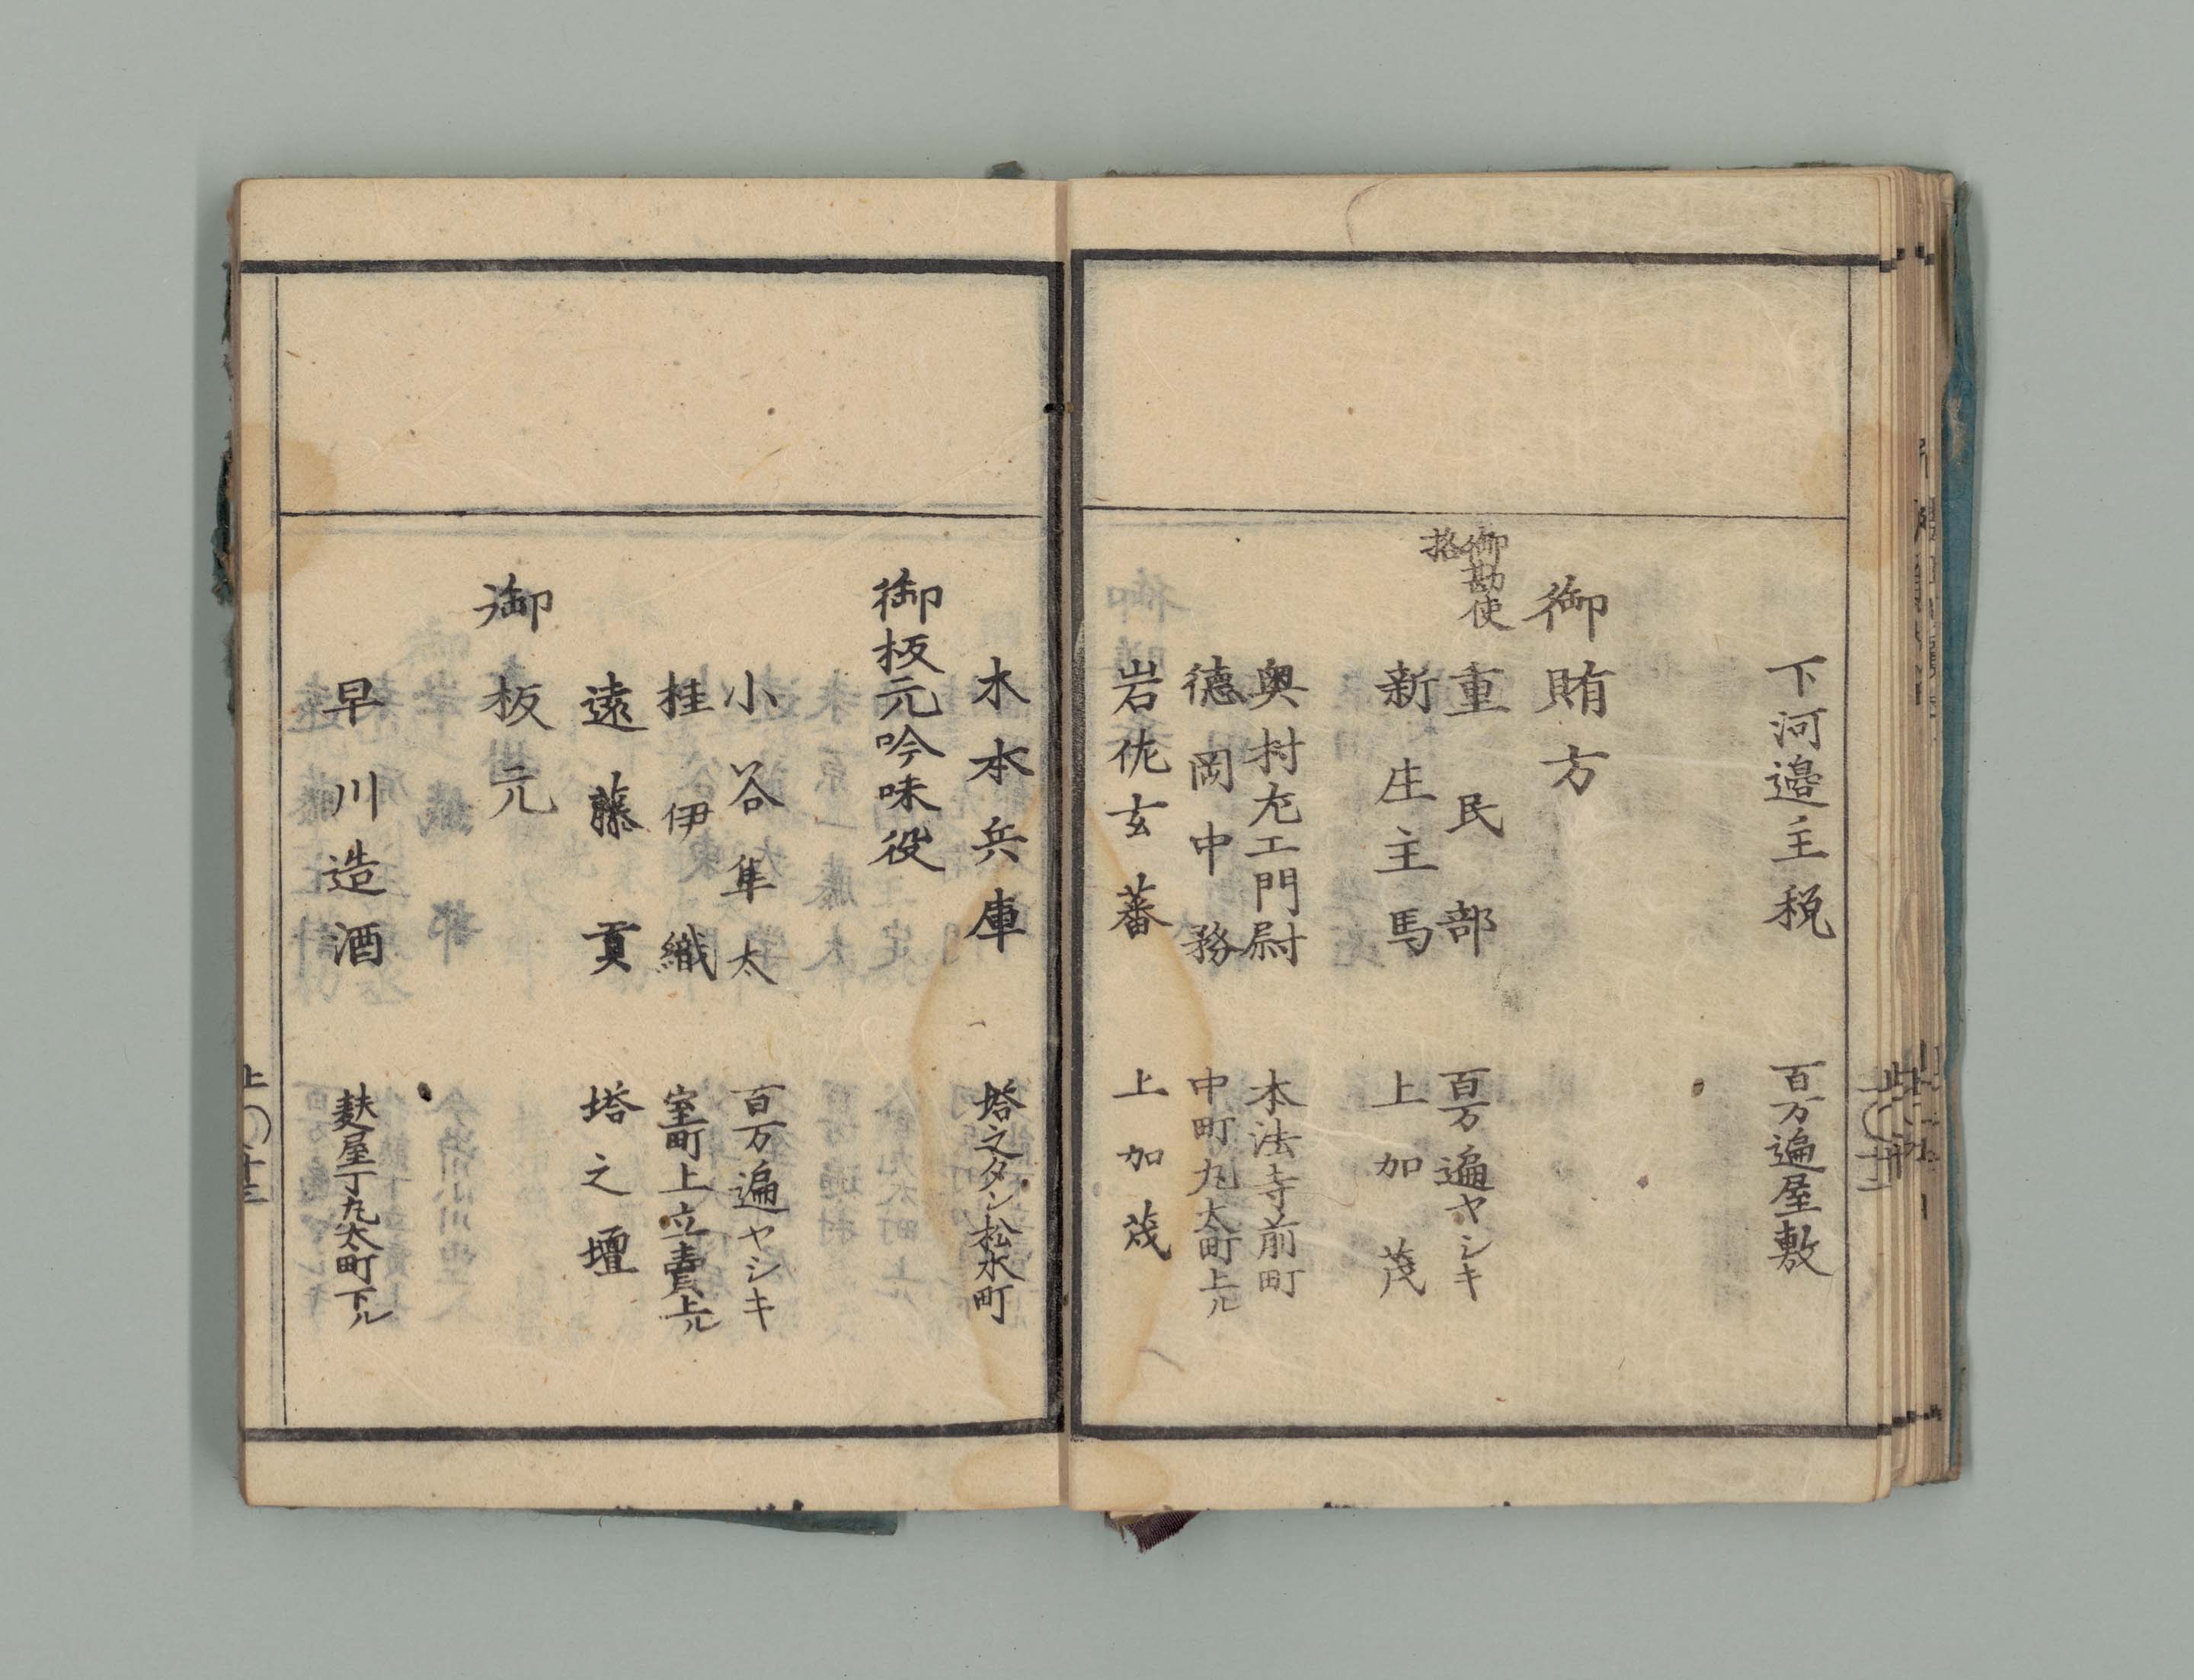 下河邉主税 百万遍屋敷
御賄方
御勘使
格
重民部 百万遍ヤシキ
新庄主馬 上加茂
奥村左エ門尉 本法寺前町
德岡中務 中町丸太町上ル
岩佐玄蕃 上加茂
水本兵庫 塔之タン松水町
御板元吟味役
小谷隼太 百万遍ヤシキ
桂伊織 室町上立賣上ル
遠藤貢 塔之壇
御板元
早川造酒 麸屋丁丸太町下ル
上〇十三